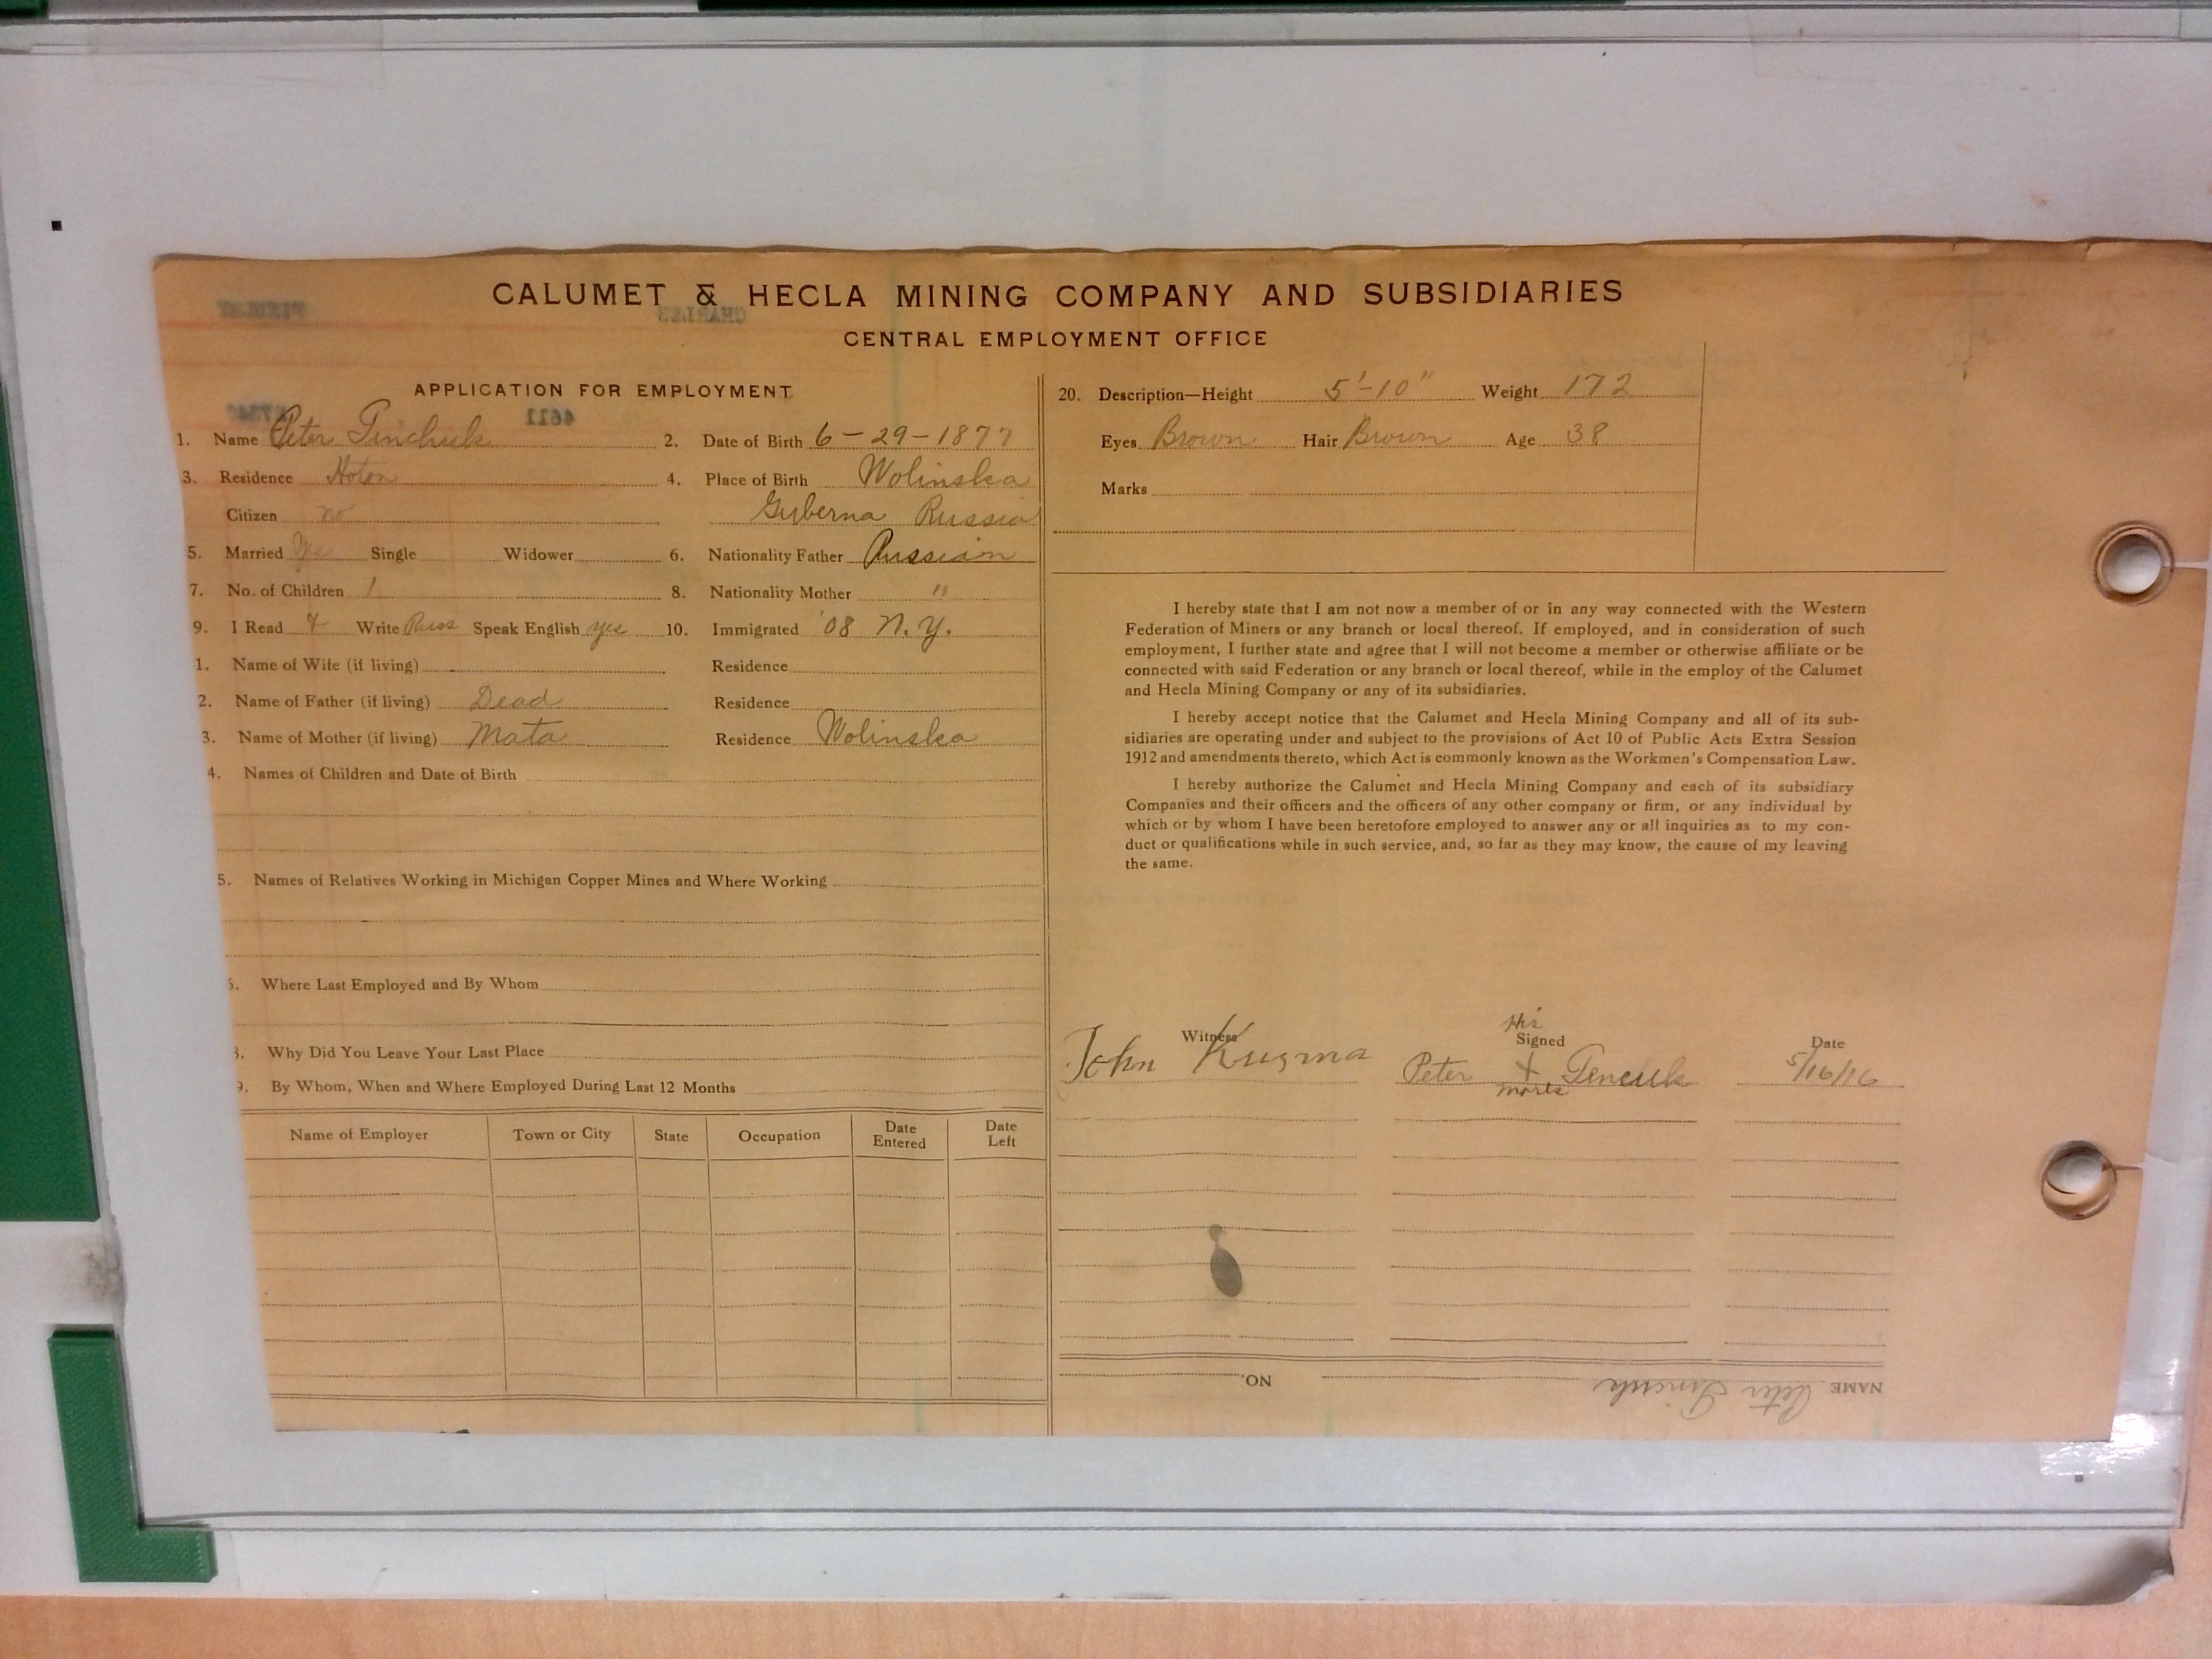 CALUMET & HECLA MINING COMPANY AND SUBSIDIARIES
CENTRAL EMPLOYMENT OFFICE
APPLICATION FOR EMPLOYMENT
4611
1. Name Peter Tinchuk 2. Date of Birth 6-29-1877
3. Residence Hoton 4. Place of Birth Wolinska
Citizen no Guberna Russia
5. Married Yes Single Widower 6. Nationality Father Russian
7. No. of Children 1 8. Nationality Mother "
9. I Read & Write Russ Speak English yes 10. Immigrated '08 N.Y.
1. Name of Wife (if living) Residence
2. Name of Father (if living) Dead Residence
3. Name of Mother (if living) Mata Residence Wolinska
4. Names of Children and Date of Birth
5. Names of Relatives Working in Michigan Copper Mines and Where Working
Where Last Employed and By Whom
Why Did You Leave Your Last Place
9. By Whom, When and Where Employed During Last 12 Months
Name of Employer Town or City State Occupation Date Entered Date Left
20. Description—Height 5'-10" Weight 172
Eyes Brown Hair Brown Age 38
Marks
I hereby state that I am not now a member of or in any way connected with the Western
Federation of Miners or any branch or local thereof. If employed, and in consideration of such
employment, I further state and agree that I will not become a member or otherwise affiliate or be
connected with said Federation or any branch or local thereof, while in the employ of the Calumet
and Hecla Mining Company or any of its subsidiaries.
I hereby accept notice that the Calumet and Hecla Mining Company and all of its sub-
sidiaries are operating under and subject to the provisions of Act 10 of Public Acts Extra Session
1912 and amendments thereto, which Act is commonly known as the Workmen's Compensation Law.
I hereby authorize the Calumet and Hecla Mining Company and each of its subsidiary
Companies and their officers and the officers of any other company or firm, or any individual by
which or by whom I have been heretofore employed to answer any or all inquiries as to my con-
duct or qualifications while in such service, and, so far as they may know, the cause of my leaving
the same.
His
Witness Signed Date
John Kuzma Peter x Tencuk 5/16/16
mark
NAME Peter Tincuk NO.